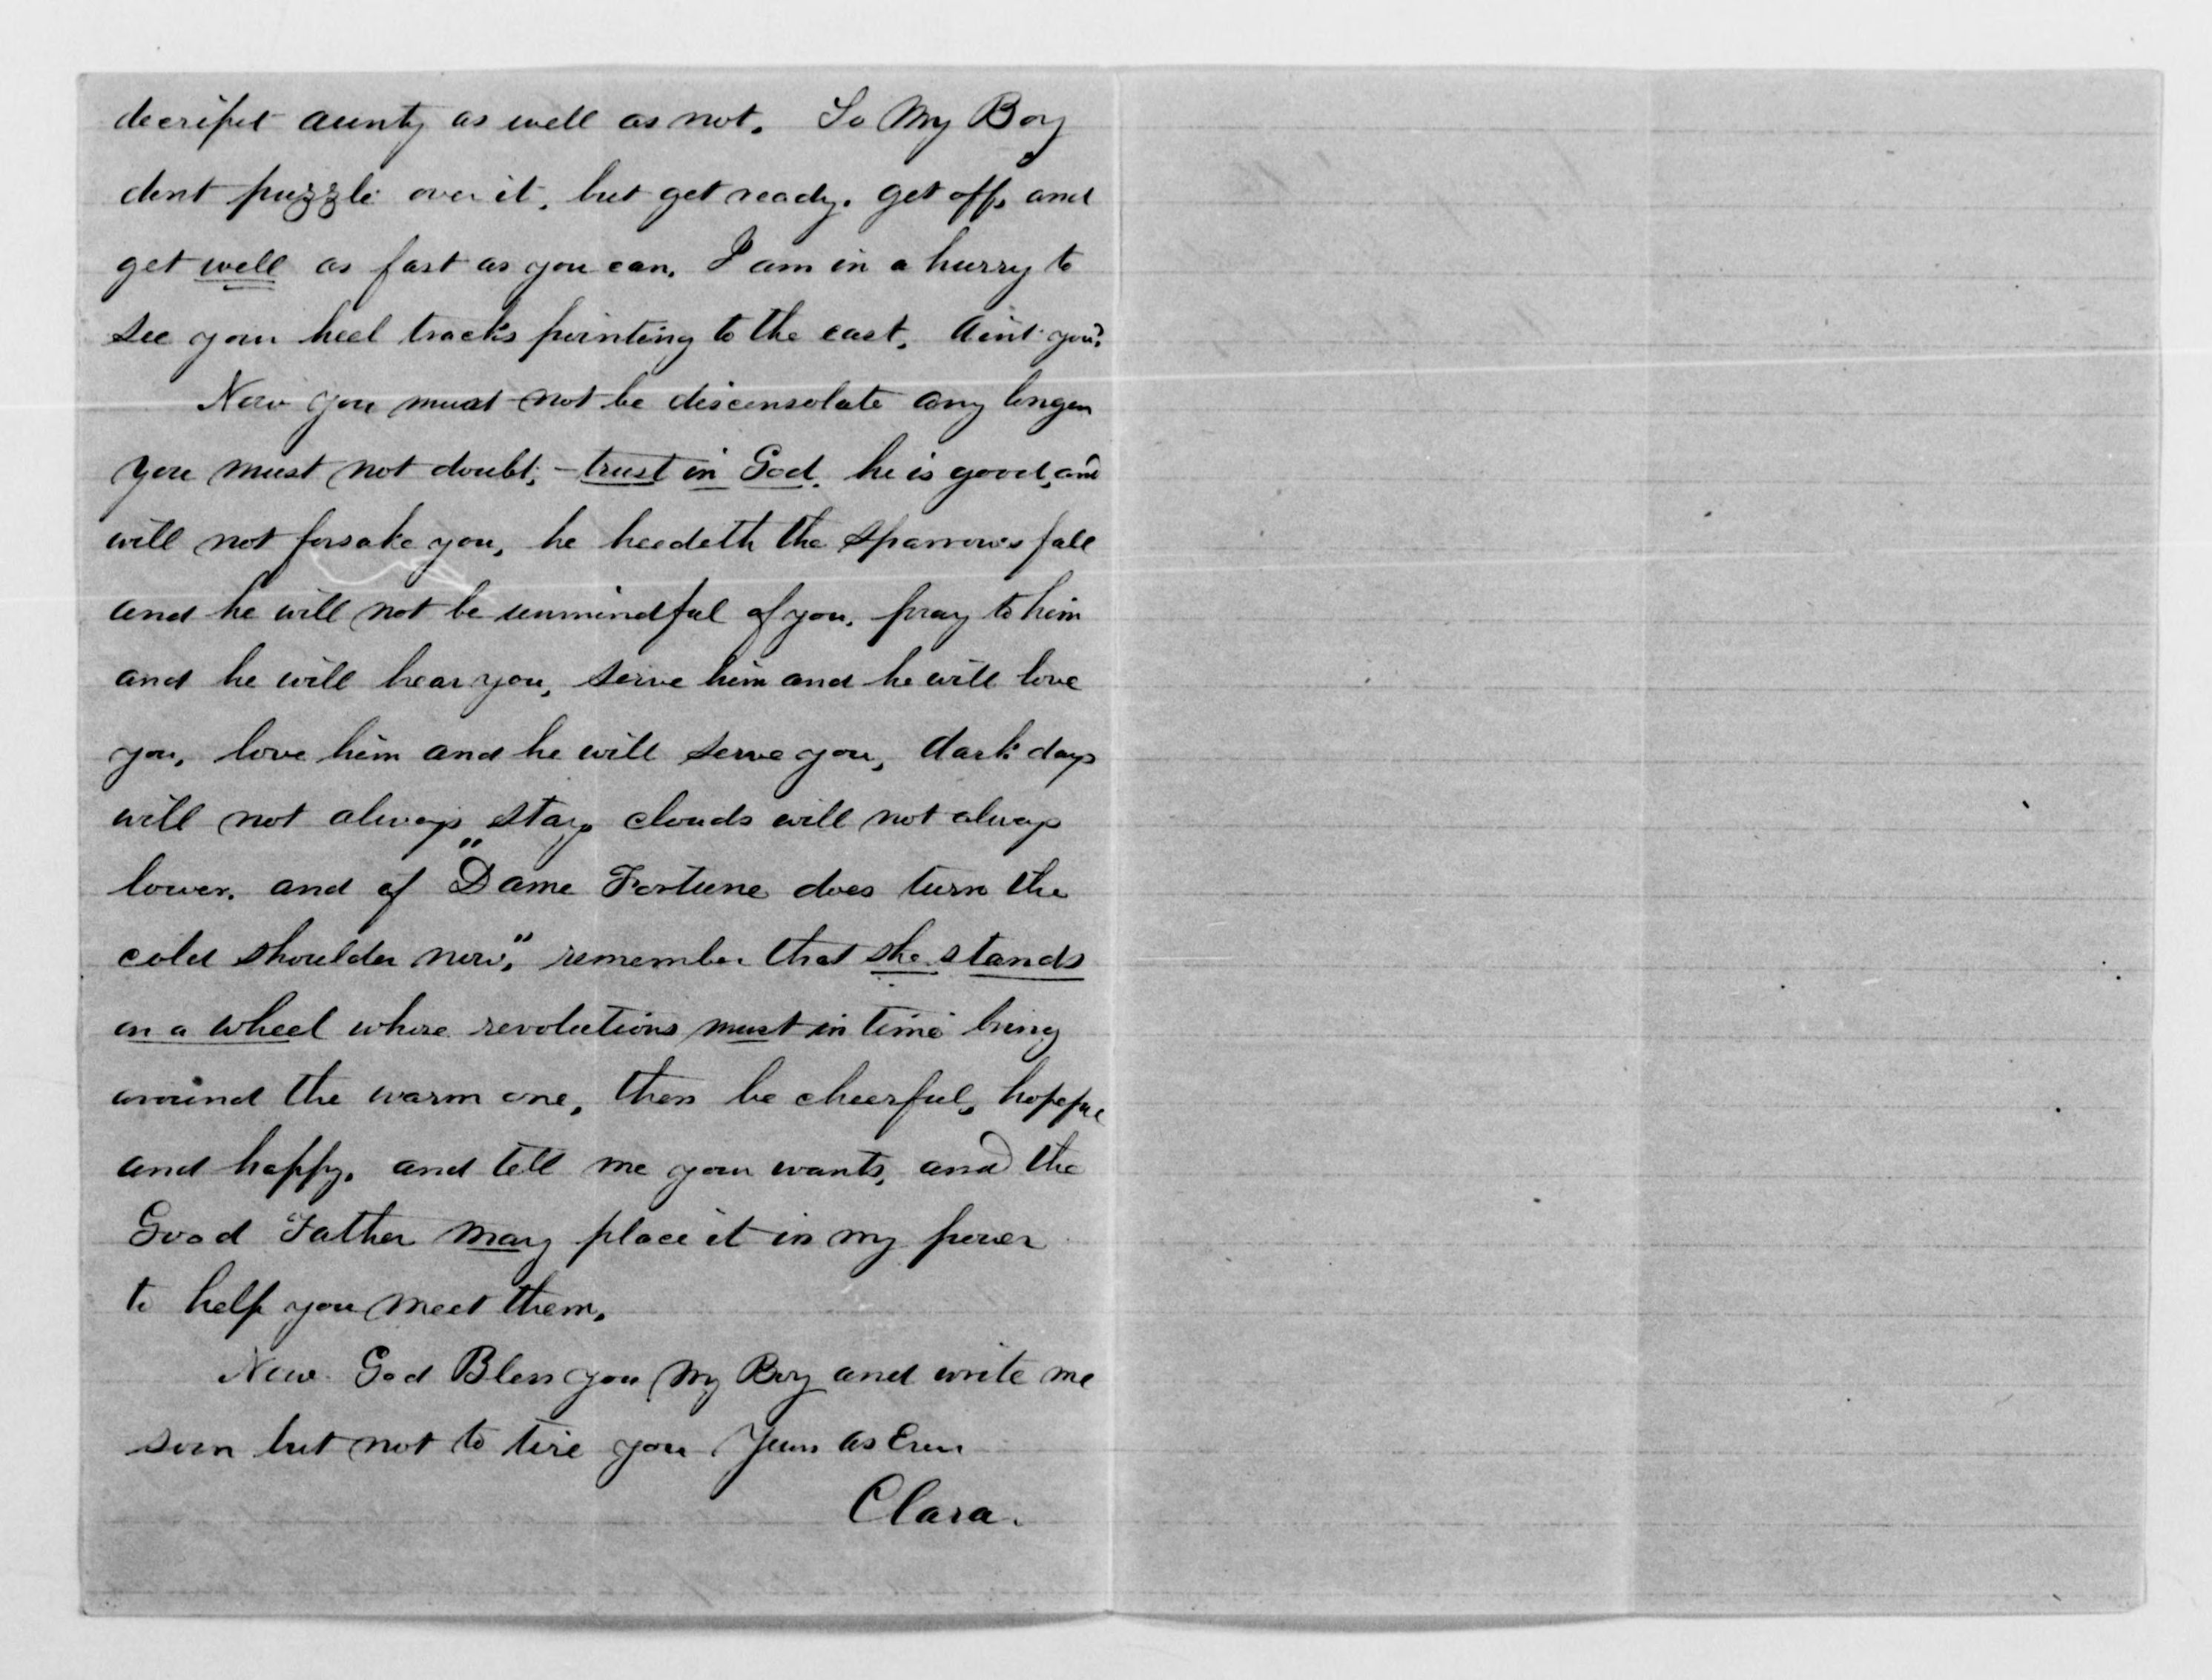 decripit aunty as well as not. So My Boy
dont puzzle over it, but get ready. get off, and
get well as fast as you can. I am in a hurry to
see your heel tracks pointing to the east, Aint you?
Now you must not be disconsolate any longer
you must not doubt, – trust in God. he is good, and
will not forsake you, he heedeth the sparrows fall
and he will not be unmindful of you, pray to him
and he will hear you, serve him and he will love
you, love him and he will serve you, dark days
will not always stay clouds will not always
lower, and if "Dame Fortune does turn the
cold shoulder now," remember that she stands
on a wheel whose revolutions must in time bring
around the warm one, then be cheerful, hopeful
and happy, and tell me your wants, and the
Good Father may place it in my power
to help you meet them.
Now God Bless you My Boy and write me
soon but not to tire you Yours as Ever
Clara.